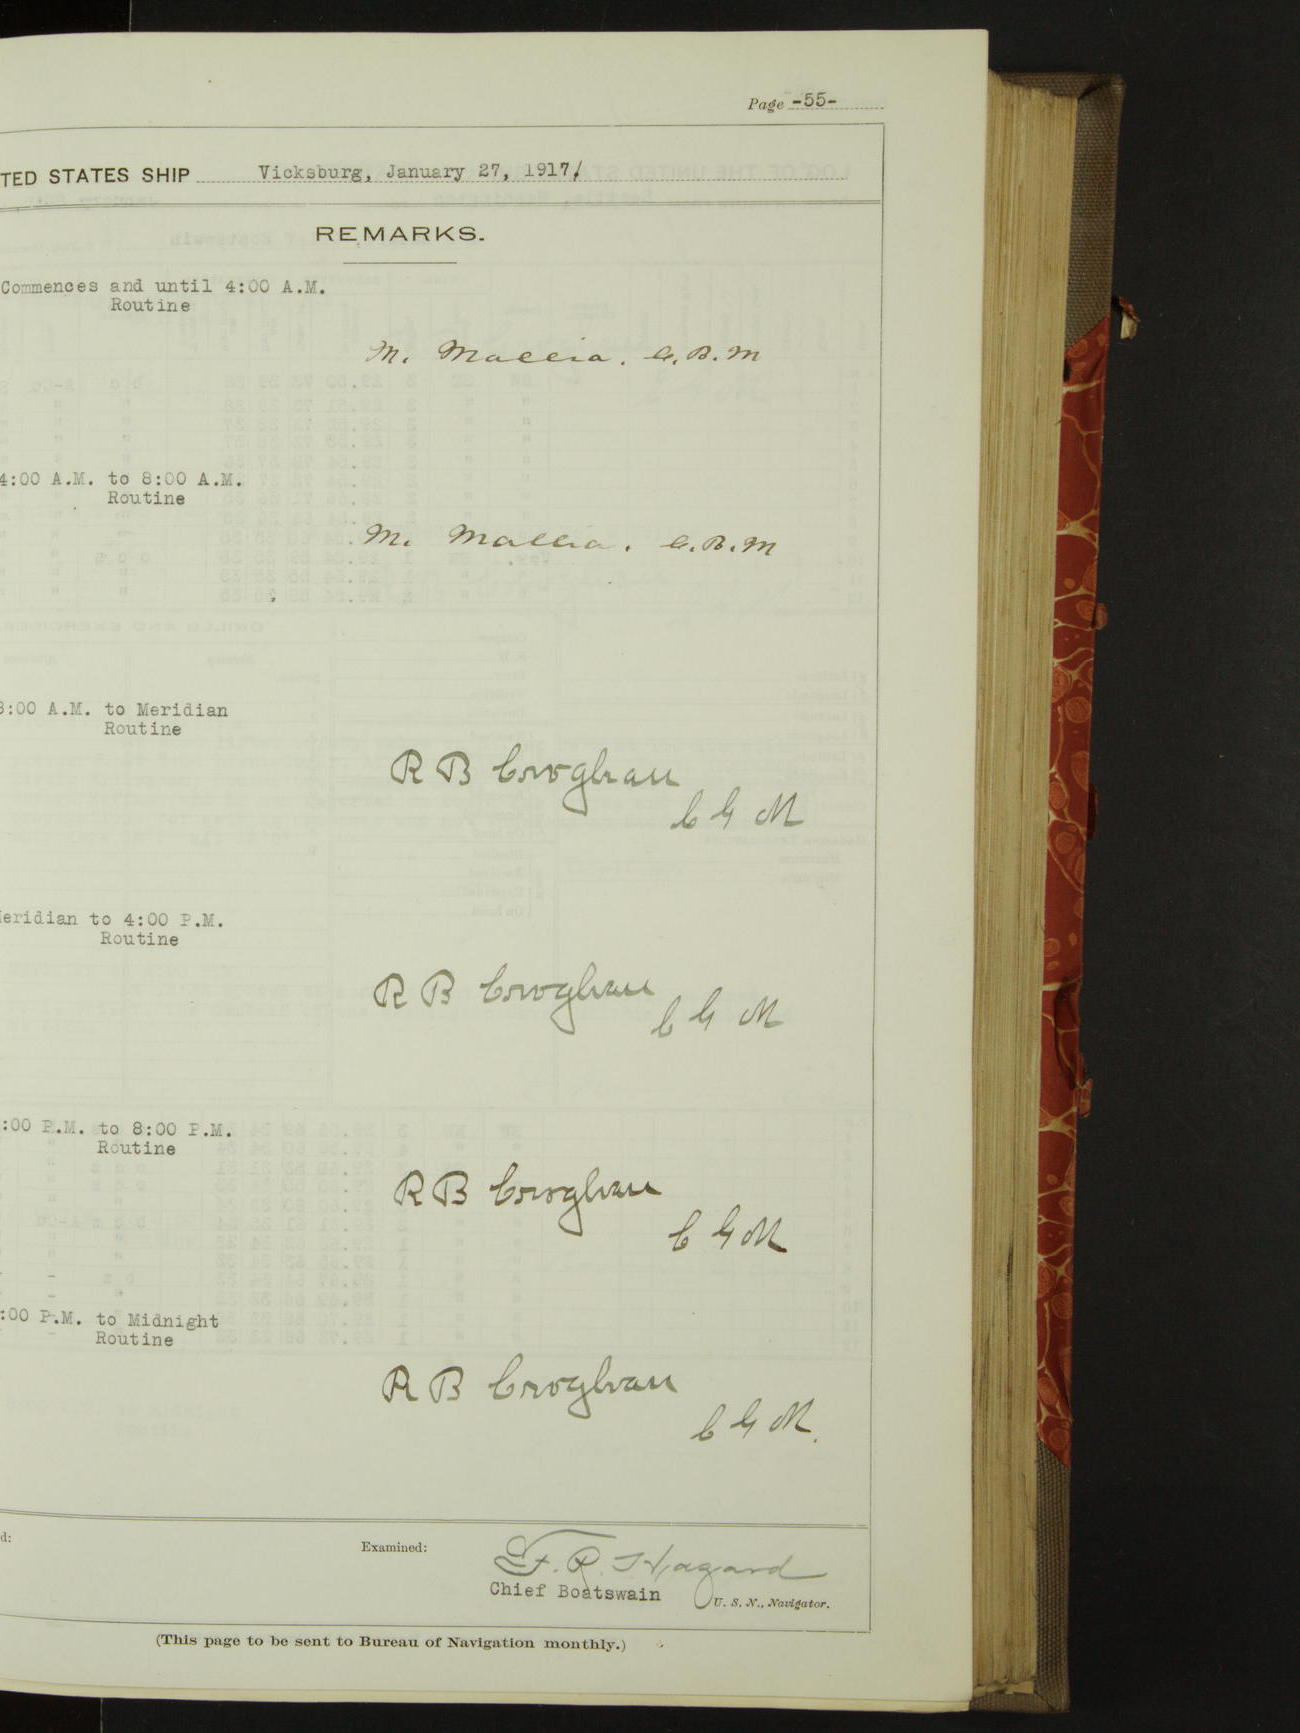 Page -55-
TED STATES SHIP Vicksburg, January 27, 1917.
REMARKS.
Commences and until 4:00 A.M.
Routine
M. Mallia. C.B.M
4:00 A.M. to 8:00 A.M.
Routine
M. Mallia. C.B.M
8:00 A.M. to Meridian
Routine
R B Croghan
C G M
Meridian to 4:00 P.M.
Routine
R B Croghan
C G M
:00 P.M. to 8:00 P.M.
Routine
R B Croghan
C G M
:00 P.M. to Midnight
Routine
R B Croghan
C G M.
d:
Examined:
F. R. Hazard
Chief Boatswain
U. S. N., Navigator.
(This page to be sent to Bureau of Navigation monthly.)